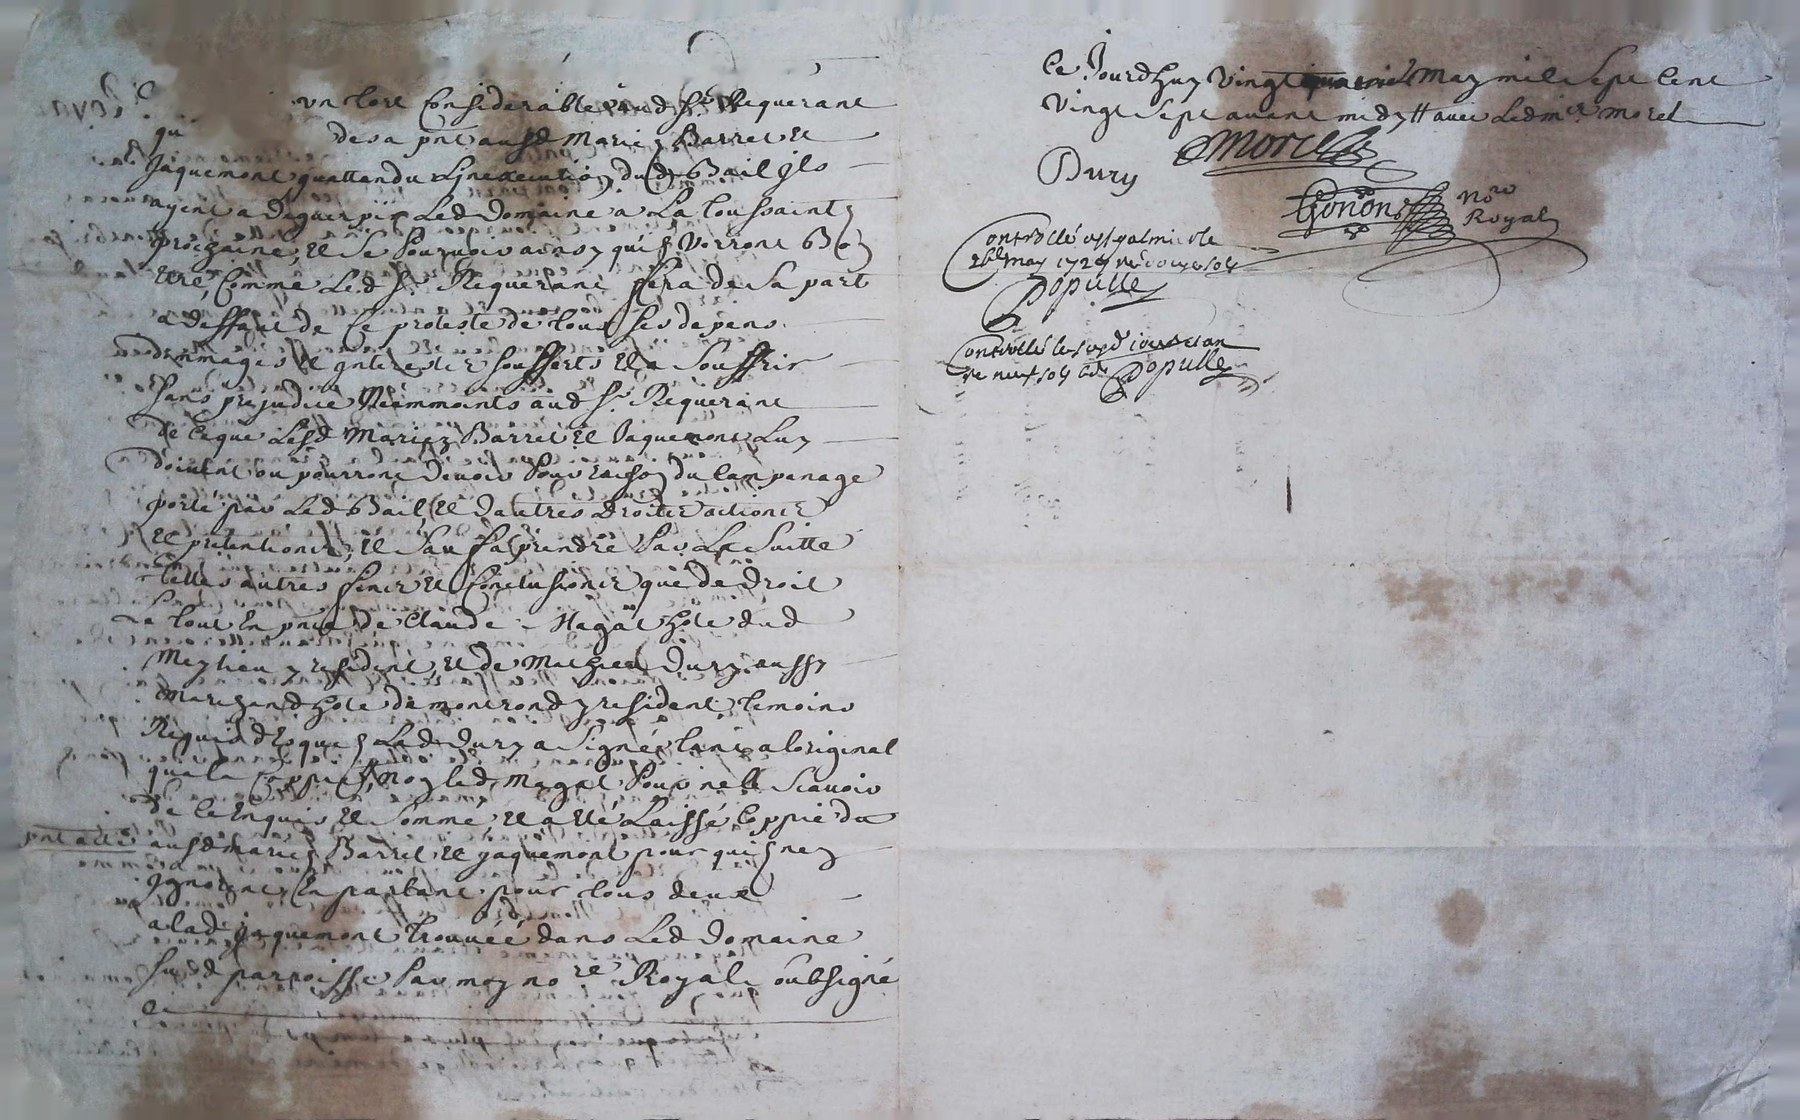 un tort Considerable aud Sr Requerant
qu desa pnt ausd Mariez Barret et
Jaquemont quattendu Linexecution dud Bail Jls
ayent a deguerpir Led Domaine a La toussaintz
prochaine, et se Pourvoir ainsy quilz Verront Bon
Etre, Comme Led Sr Requerant fera de Sa part
a deffaut de Ce proteste de tous ses depens
dommages et Jnterestz soufferts et a Souffrir
Sans prejudice Neammoints aud Sr Requerant
de Ceque Lesd Mariez Barret et Jaquemont Luy
doivent ou pourront Devoir Pour raison du
porté par Led Bail, et Dautres Droitz actions
et pretentions, et Sauf a prendre Par La Suitte
telles autres fins et Conclusions que de droit
Le tout En pnce de Claude Magat hote dud
Meylieu y resident, et de Mathieu Dury aussy
Marchand hote de montrond y resident temoins
Requis desquelz Led Dury a Signé tant a loriginal
qua la Coppie Et Non led Magat Pour ne le Scavoir
de ce Enquis et Sommé, et a eté Laissé Coppie du
pnt acte ausd mariez Barret et Jaquemont pour quilz nen
Jgnorent En parlant pour tous deux
a lad Jaquemont trouvéé dans Led Domaine
Susd parroisse Par moy nore Royal soubsigné
Ce Jourdhuy Vingt May mil Sept Cent
Vingt Sept avant midy avec Led Sr Morel
Morel
Dury
Gonon
Nore
Royal
Controllé a St galmier le
26e May 1727 Reçu sols
Populle
Controllé le
neuf sols 6d Populle